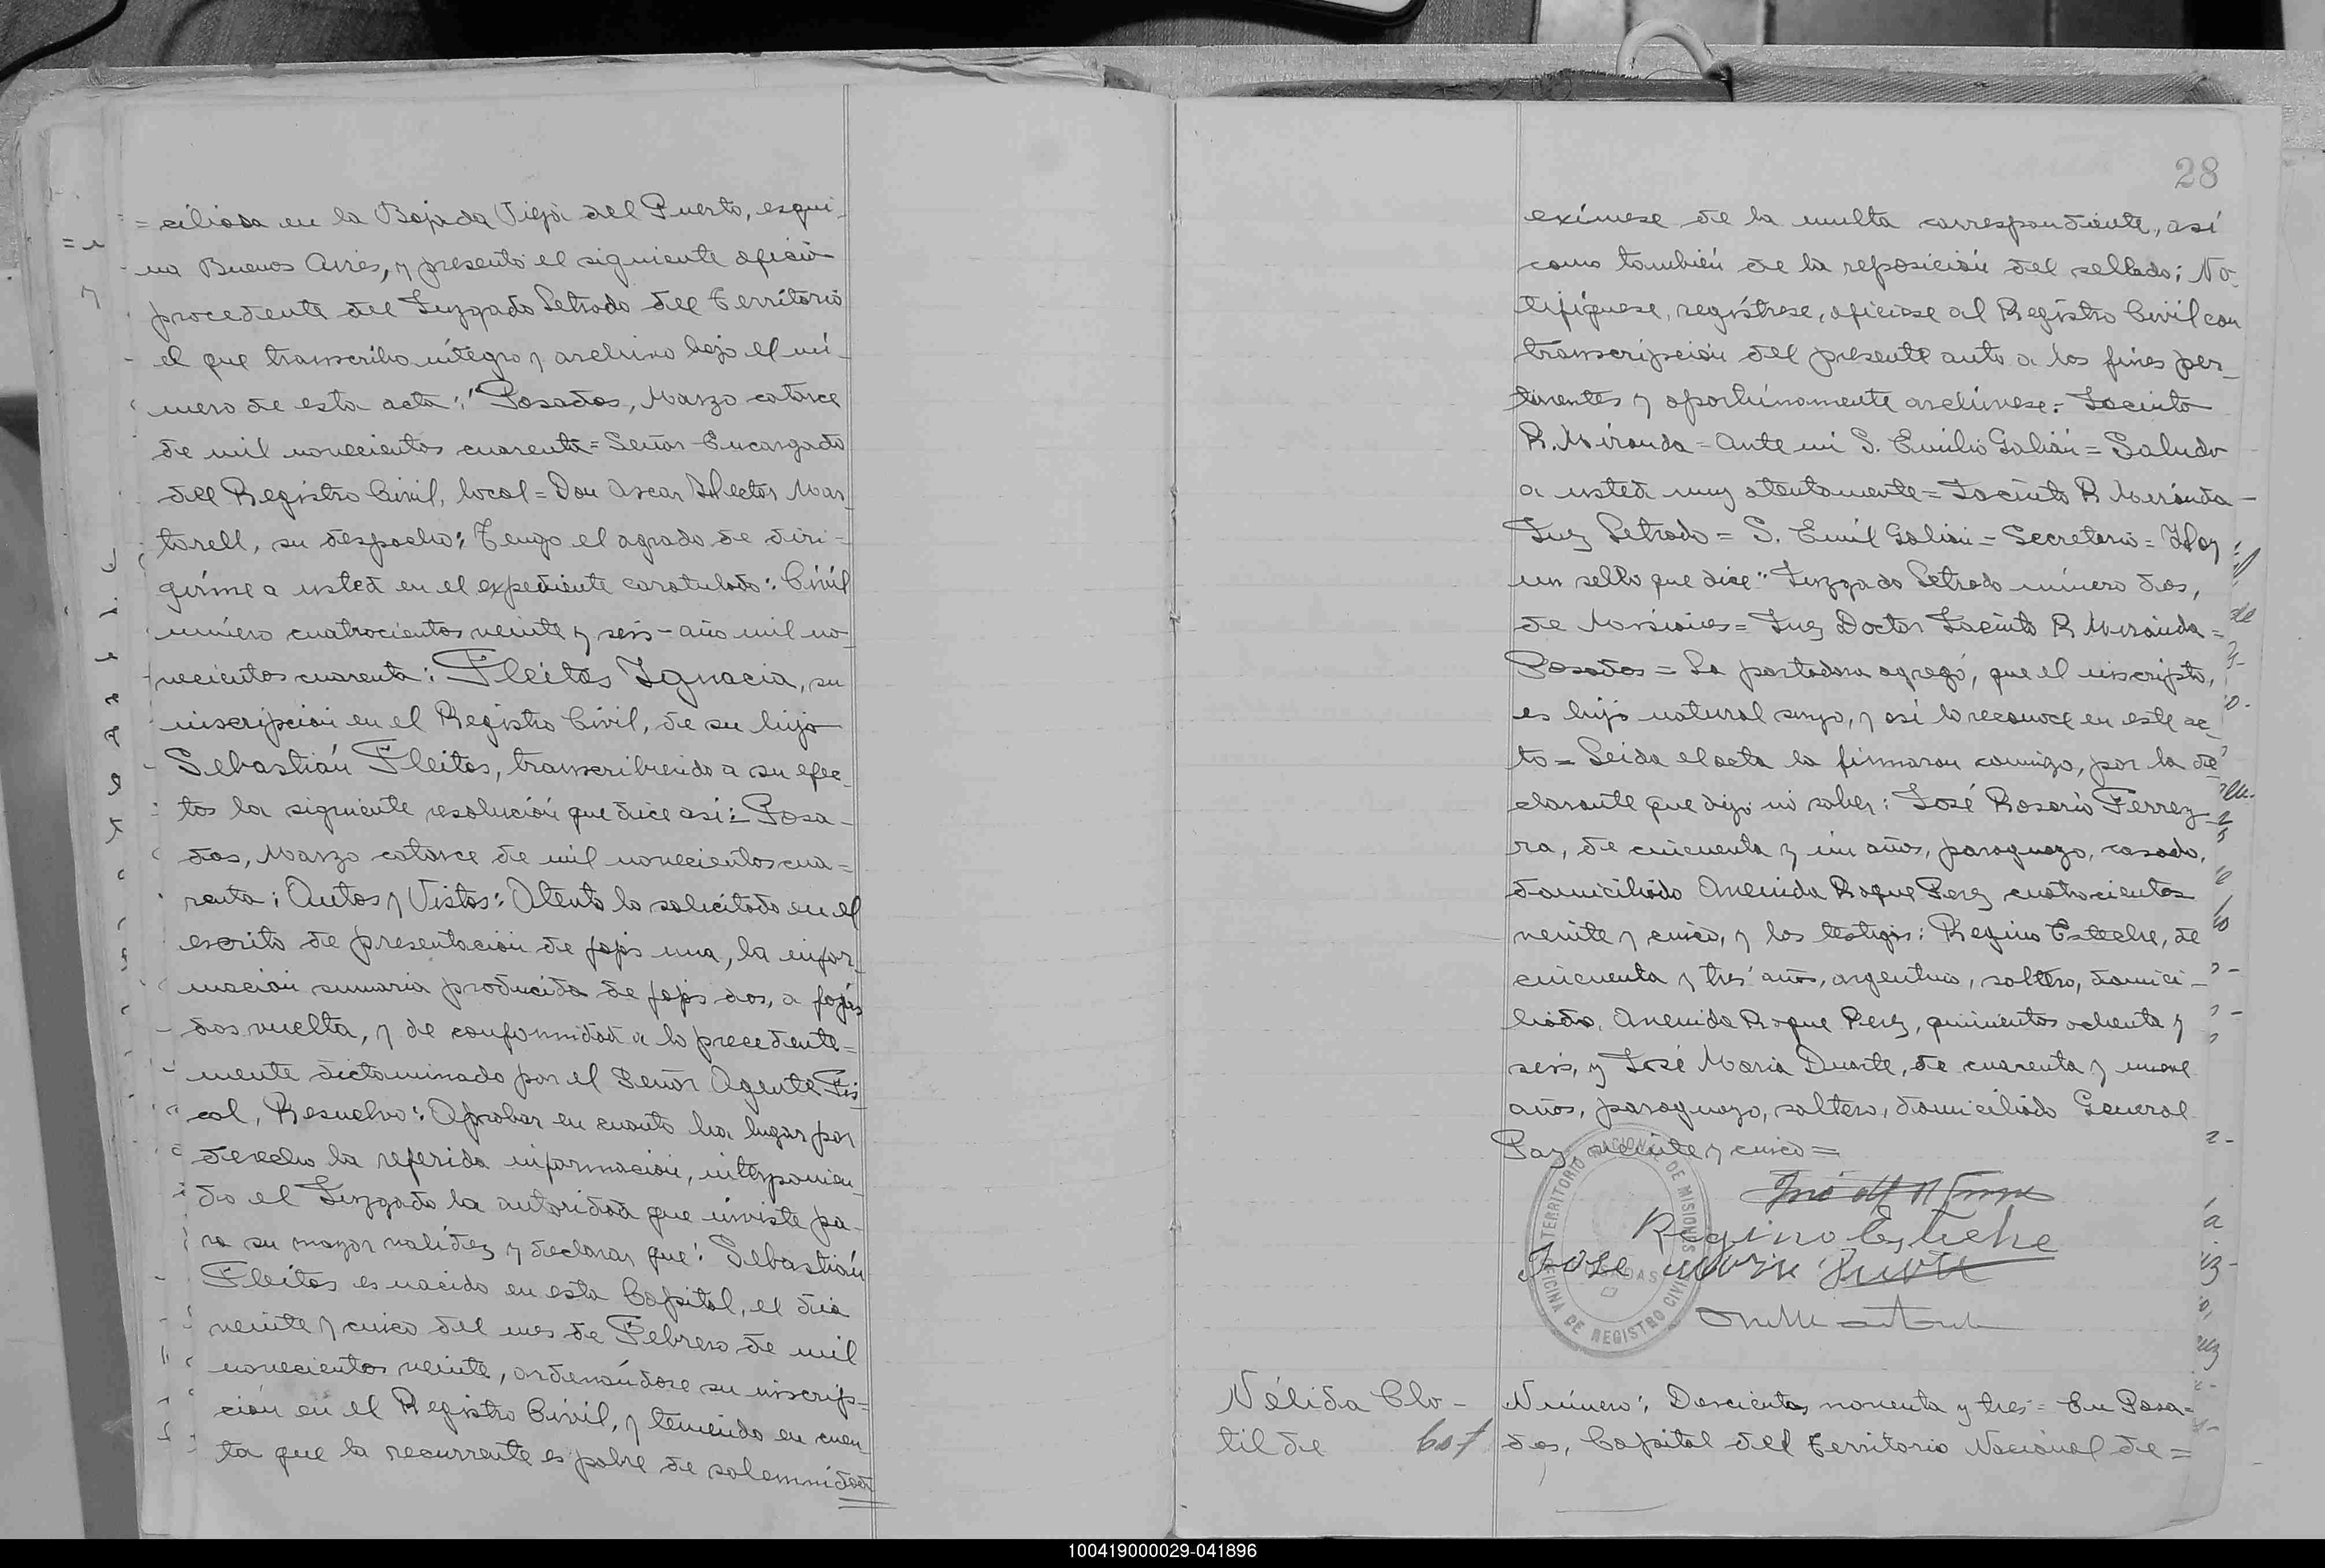 = ciliada en la Bajada Vieja del Puerto, esqui-
na Buenos Aires, y presentó el siguiente oficio
procedente del Juzgado Letrado del Territorio
el que transcribo íntegro y archivo bajo el nú-
mero de esta acta: "Posadas, Marzo catorce
de mil novecientos cuarenta = Señor Encargado
del Registro Civil, local = Don Oscar Hector Mar-
torell, su despacho: Tengo el agrado de diri-
girme a usted en el expediente caratulado: Civil
número cuatrocientos veinte y seis - año mil no-
vecientos cuarenta: Fleitas Ignacia, su
inscripción en el Registro Civil, de su hijo
Sebastián Fleitas, transcribiendo a su efec-
tos la siguiente resolución que dice así: Posa-
das, Marzo catorce de mil novecientos cua-
renta: Autos y Vistos: Atento lo solicitado en el
escrito de presentación de fojas una, la infor-
mación sumaria producida de fojas dos, a fojas
dos vuelta, y de conformidad a lo precedente=
mente dictaminado por el Señor Agente Fis-
cal, Resuelvo: Aprobar en cuanto ha lugar por
derecho la referida información, interponien-
do el Juzgado la autoridad que inviste pa-
ra su mayor validez y declarar que: Sebastián
Fleitas es nacido en esta Capital, el dia
veinte y cinco del mes de Febrero de mil
novecientos veinte, ordenándose su inscrip=
ción en el Registro Civil, y teniendo en cuen-
ta que la recurrente es pobre de solemnidad
28
exímese de la multa correspondiente, así
como también de la reposición del sellado; No-
tifíquese, regístrese, ofíciese al Registro Civil con
transcripción del presente auto a los fines per-
tinentes y oportúnamente archívese = Jacinto
R. Miranda = Ante mi S. Emilio Galián = Saludo
a usted muy atentamente = Jacinto R Miranda -
Juez Letrado = S. Emil Galian = Secretario = Hay
un sello que dice: Juzgado Letrado número dos,
de Misiones = Juez Doctor Jacinto R Miranda =
Posadas = La portadora agregó, que el inscripto,
es hijo natural suyo, y así lo reconoce en este ac-
to = Leida el acta la firmaron conmigo, por la de-
clarante que dijo no saber: José Rosario Ferrey-
ra, de cincuenta y un años, paraguayo, casado,
domiciliado Avenida Roque Perez cuatrocientos
veinte y cinco, y los testigos: Regino Esteche, de
cincuenta y tres años, argentino, soltero, domici-
liado, Avenida Roque Perez, quinientos ochenta y
seis, y José Maria Duarte, de cuarenta y nueve
años, paraguayo, soltero, domiciliado General
Paz veinte y cinco =
Regino Esteche
Jose Maria Duarte
TERRITORIO NACIONAL DE MISIONES
OFICINA DE REGISTRO CIVIL
POSADAS
Nélida Clo-
tilde
Número: Doscientos noventa y tres = En Posa-
das, Capital del Territorio Nacional de =
100419000029-041896